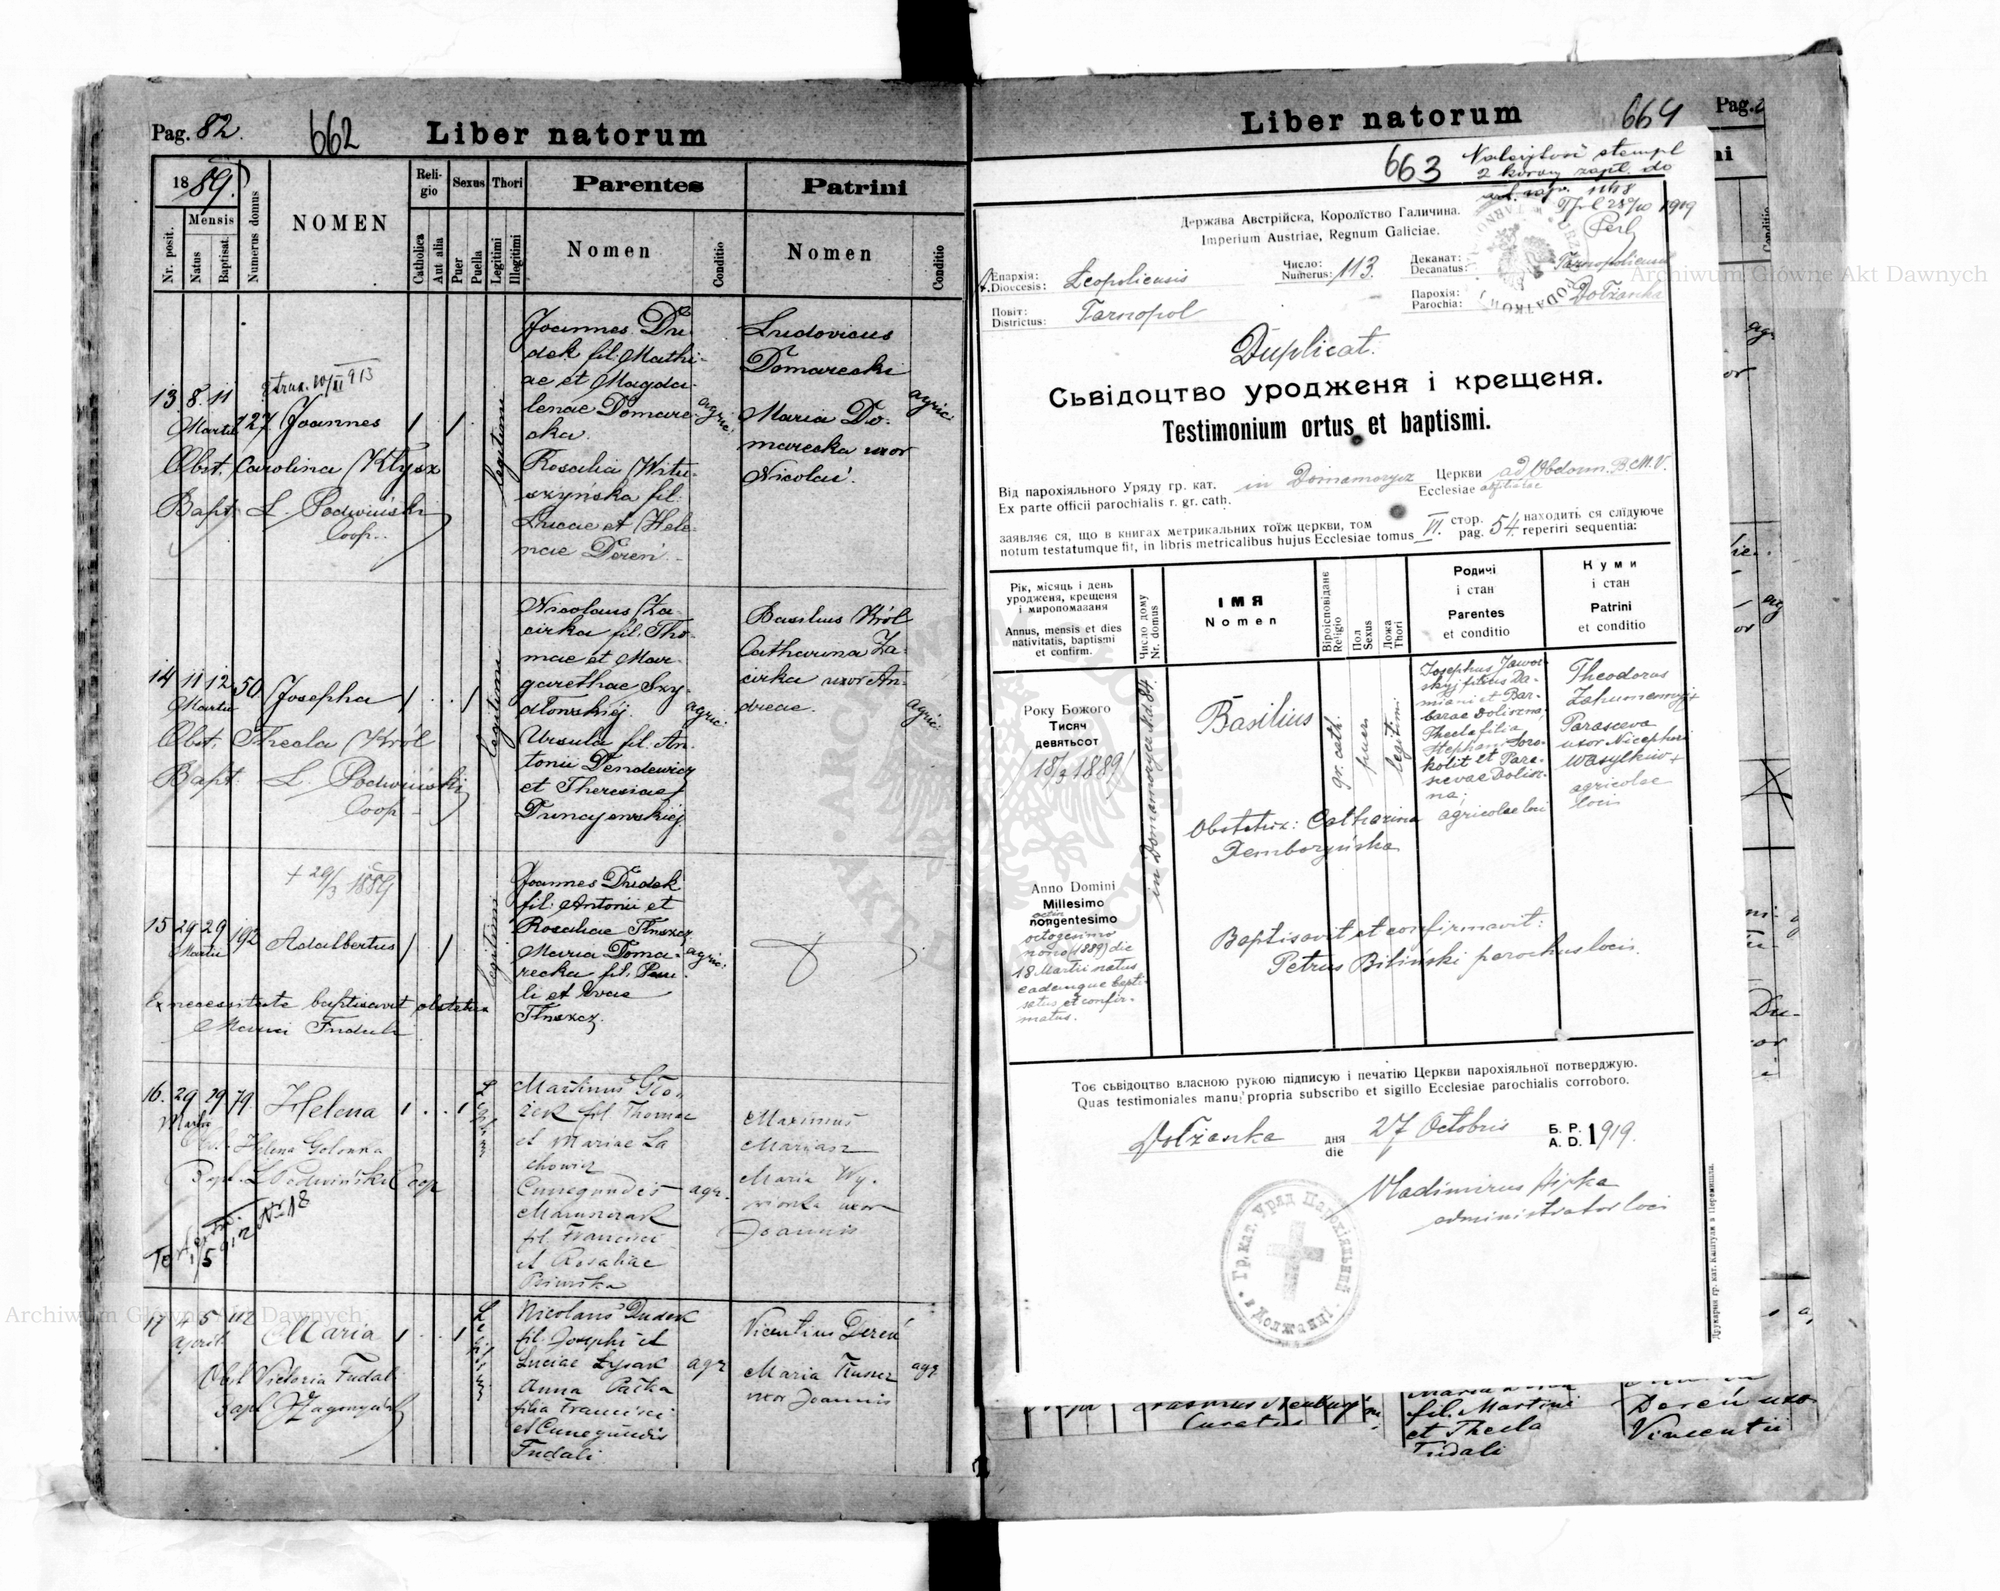 Pag. 82.
662
Liber natorum
1889.
Mensis
Nr. posit.
Natus
Baptisat.
Numerus domus
NOMEN
Religio
Catholica
Aut alia
Sexus
Puer
Puella
Thori
Legitimi
Illegitimi
Parentes
Nomen
Conditio
Patrini
Nomen
Conditio
13 8. 11
Martii 127. Joannes 1 1
Obst. Carolina Kłysz
Bapt. L. Podwiński
Coop.
legitimi
Joannes Du-
dek fil. Mathi-
ae et Magda-
lenae Domare-
cka.
Rosalia Witu-
szyńska fil.
Lucae et Hele-
nae Dereń.
agric.
Ludovicus
Domarecki
Maria Do-
marecka uxor
Nicolai.
agric.
14 11 12 50 Josepha 1 . . 1
Martii
Obst. Thecla Król
Bapt. L. Podwiński
Coop.
legitimi
Nicolaus Za-
cirka fil. Tho-
mae et Mar-
garethae Szy-
dłowskiej.
Ursula fil. An-
tonii Dendewicz
et Theresiae
agric.
Basilius Król
Catharina Za-
cirka uxor An-
dreae.
agric.
+ 29/3 1889
15 29 29 192 Adalbertus 1 1
Martii
Ex necessitate baptisavit obstetrix
legitimi
Joannes Dudek
fil. Antonii et
Rosaliae Tłuszcz
Maria Doma-
recka fil. Pau-
li et Evae
Tłuszcz.
agric.
16. 29 29 79 Helena 1 . . 1
Martii
Obst. Helena Golonka
Bapt. L Podwiński Coop
1/5 912 No 18
Martinus
fil Thomae
et Mariae La
chowicz
Cunegundis
fil. Francisci
et Rosaliae
agr.
Marianus
Mariasz
Maria Wy-
uxor
Joannis
17 4 5 112 Maria 1 . . 1
April
Obst Victoria Fudali
Nicolaus Dudek
fil. Josephi et
Luciae Łysak
Anna Pačka
filia Francisci
et Cunegundis
Fudali
agr
Vicentius Dereń
Maria Tłuszcz
uxor Joannis
agr.
Liber natorum
664
Pag.
663
Należytość stempl
2 korony zapł. do
1919
Perl
Держава Австрійска, Королїство Галичина.
Imperium Austriae, Regnum Galiciae.
Епархія:
Dioecesis: Leopoliensis
Число:
Numerus: 113.
Деканат:
Decanatus: Tarnopoliensis
Повіт:
Districtus: Tarnopol
Парохія:
Parochia: Dołżanka
Duplicat.
Сьвідоцтво уродженя і крещеня.
Testimonium ortus et baptismi.
Від парохіяльного Уряду гр. кат. in Domamorycz Церкви ad Obdorm. B.M.V.
Ex parte officii parochialis r. gr. cath. Ecclesiae
заявляє ся, що в книгах метрикальних тоїж церкви, том VI. стор. 54. находить ся слїдуюче
notum testatumque fit, in libris metricalibus hujus Ecclesiae tomus pag. reperiri sequentia:
Рік, місяць і день
уродженя, крещеня
і миропомазаня
Annus, mensis et dies
nativitatis, baptismi
et confirm.
Число дому
Nr. domus
ІМЯ
Nomen
Віроісповіданє
Religio
Пол
Sexus
Ложа
Thori
Родичі
і стан
Parentes
et conditio
Куми
і стан
Patrini
et conditio
Року Божого
Тисяч
девятьсот
/18/3 1889/
Anno Domini
Millesimo
nongentesimo
octin
octogesimo
nono (1889) die
18 Martii natus
eademque bapti-
satus et confir-
matus.
in Domamorycz Nd 84.
Basilius
gr. cath.
puer
legitimi.
Josephus Jawor-
skyj filius Da-
miani et Bar-
barae Doliszna;
Thecla filia
Stephani Soro-
kolit et Para-
scevae Dolisz-
na;
agricolae loci
Theodorus
Zahumennyj +
Parasceva
uxor Nicephori
Wasylkiw +
agricolae
loci
Obstetrix: Catharina
Demboryńska
Baptisavit et confirmavit:
Petrus Biliński parochus loci.
Тоє сьвідоцтво власною рукою підписую і печатію Церкви парохіяльної потверджую.
Quas testimoniales manu propria subscribo et sigillo Ecclesiae parochialis corroboro.
Dołżanka дня
die 27 Octobris Б. Р.
A. D. 1919.
Vladimirus
administrator loci
Гр. кат. Уряд Парохіяльний
Друкарня гр. кат. Капітули в Перемишли.
Curatus
fil. Martini
et Thecla
Fudali
Dereń uxor
Vincentii
Archiwum Główne Akt Dawnych
Archiwum Główne Akt Dawnych